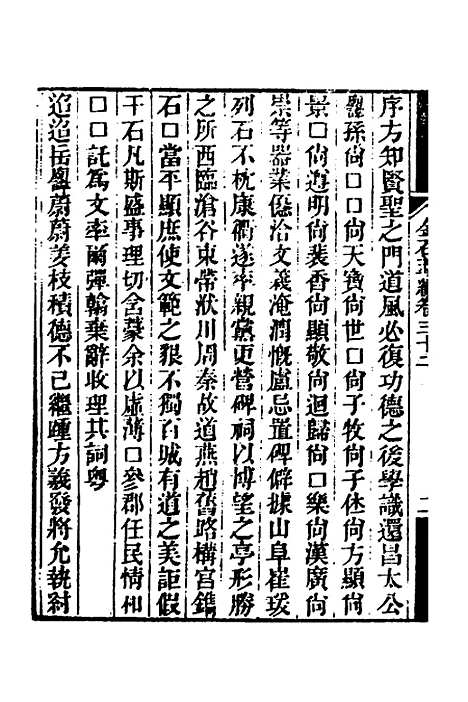 金石萃編卷三十二
二
序方知賢聖之門道風必復功德之後學識還昌太公
孫尚口口尚天寶尚世口尚子牧尚子休尚方顯尚
景口尚遵明尚裴香尚顯敬尚迴歸尚口樂尚漢廣尚
崇等器業優洽文義淹潤慨盧忌置碑僻據山阜崔瑗
列石不枕康衢遂率親黨更營碑祠以博望之亭形勝
之所西臨滄谷東帶洑川周秦故道燕趙舊路構宮鐫
石口當平顯庶使文範之狠不獨百城有道之美詎假
于石凡斯盛事理切含豪余以虛薄口參郡任民情和
口口託為文率爾彈翰棄辭收理其詞粵
迢迢岳鬱蔚蔚姜枝積德不已繼踵方義發將允執